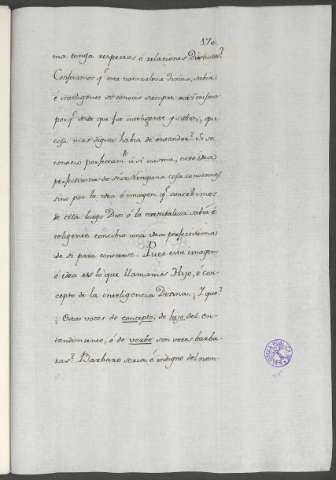 170
ma tenga respectos ó relaciones Distintas?
Confesamos q.e una naturaleza divina, sabia
é inteligente se conoce siempre a sí misma
porq.e desde que fue inteligente y sabia, que
cosa mas digna habia de entender? Si se
conocio perfectam.te a si misma, tuvo idea
perfectissima de sí
sino por la idea ó imagen q.e concebimos
de ella luego Dios ó la naturaleza sabia é
inteligente concibio una idea perfectissima
de si para conocerse. Pues esta imagen
ó idea es lo que llamamos Hijo, ó con-
cepto de la inteligencia Divina. Y que?
¿Estas voces de concepto, de hijo del en-
tendimiento, ó de verbo son voces barba-
ras? Barbaro seria é indigno del nom-